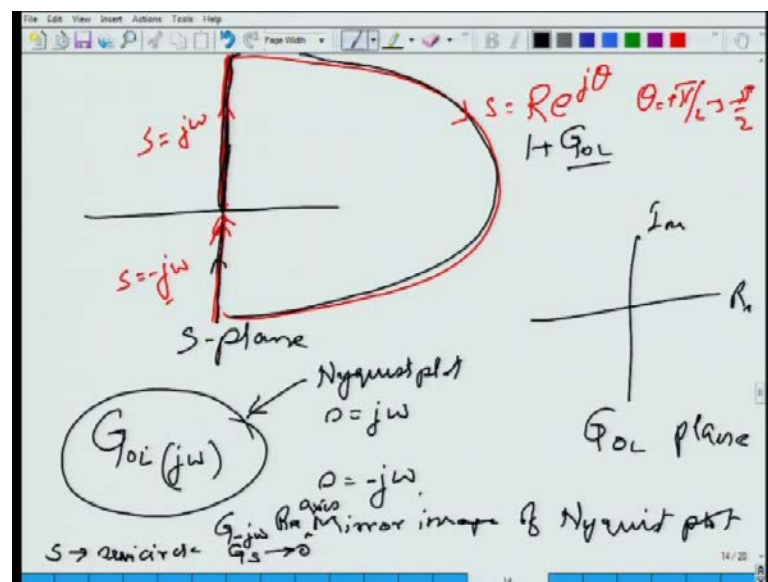 File Edit View Insert Actions Tools Help
Page Width
B I
s = jω
s = Re^jθ θ = +π/2 → -π/2
1 + G_OL
s = -jω
Im
Re
S-plane
Nyquist plot
s = jω
G_OL(jω)
G_OL plane
s = -jω
G-jω Re axis Mirror image of Nyquist plot
S → semicircle G_S → 0
14 / 20
14